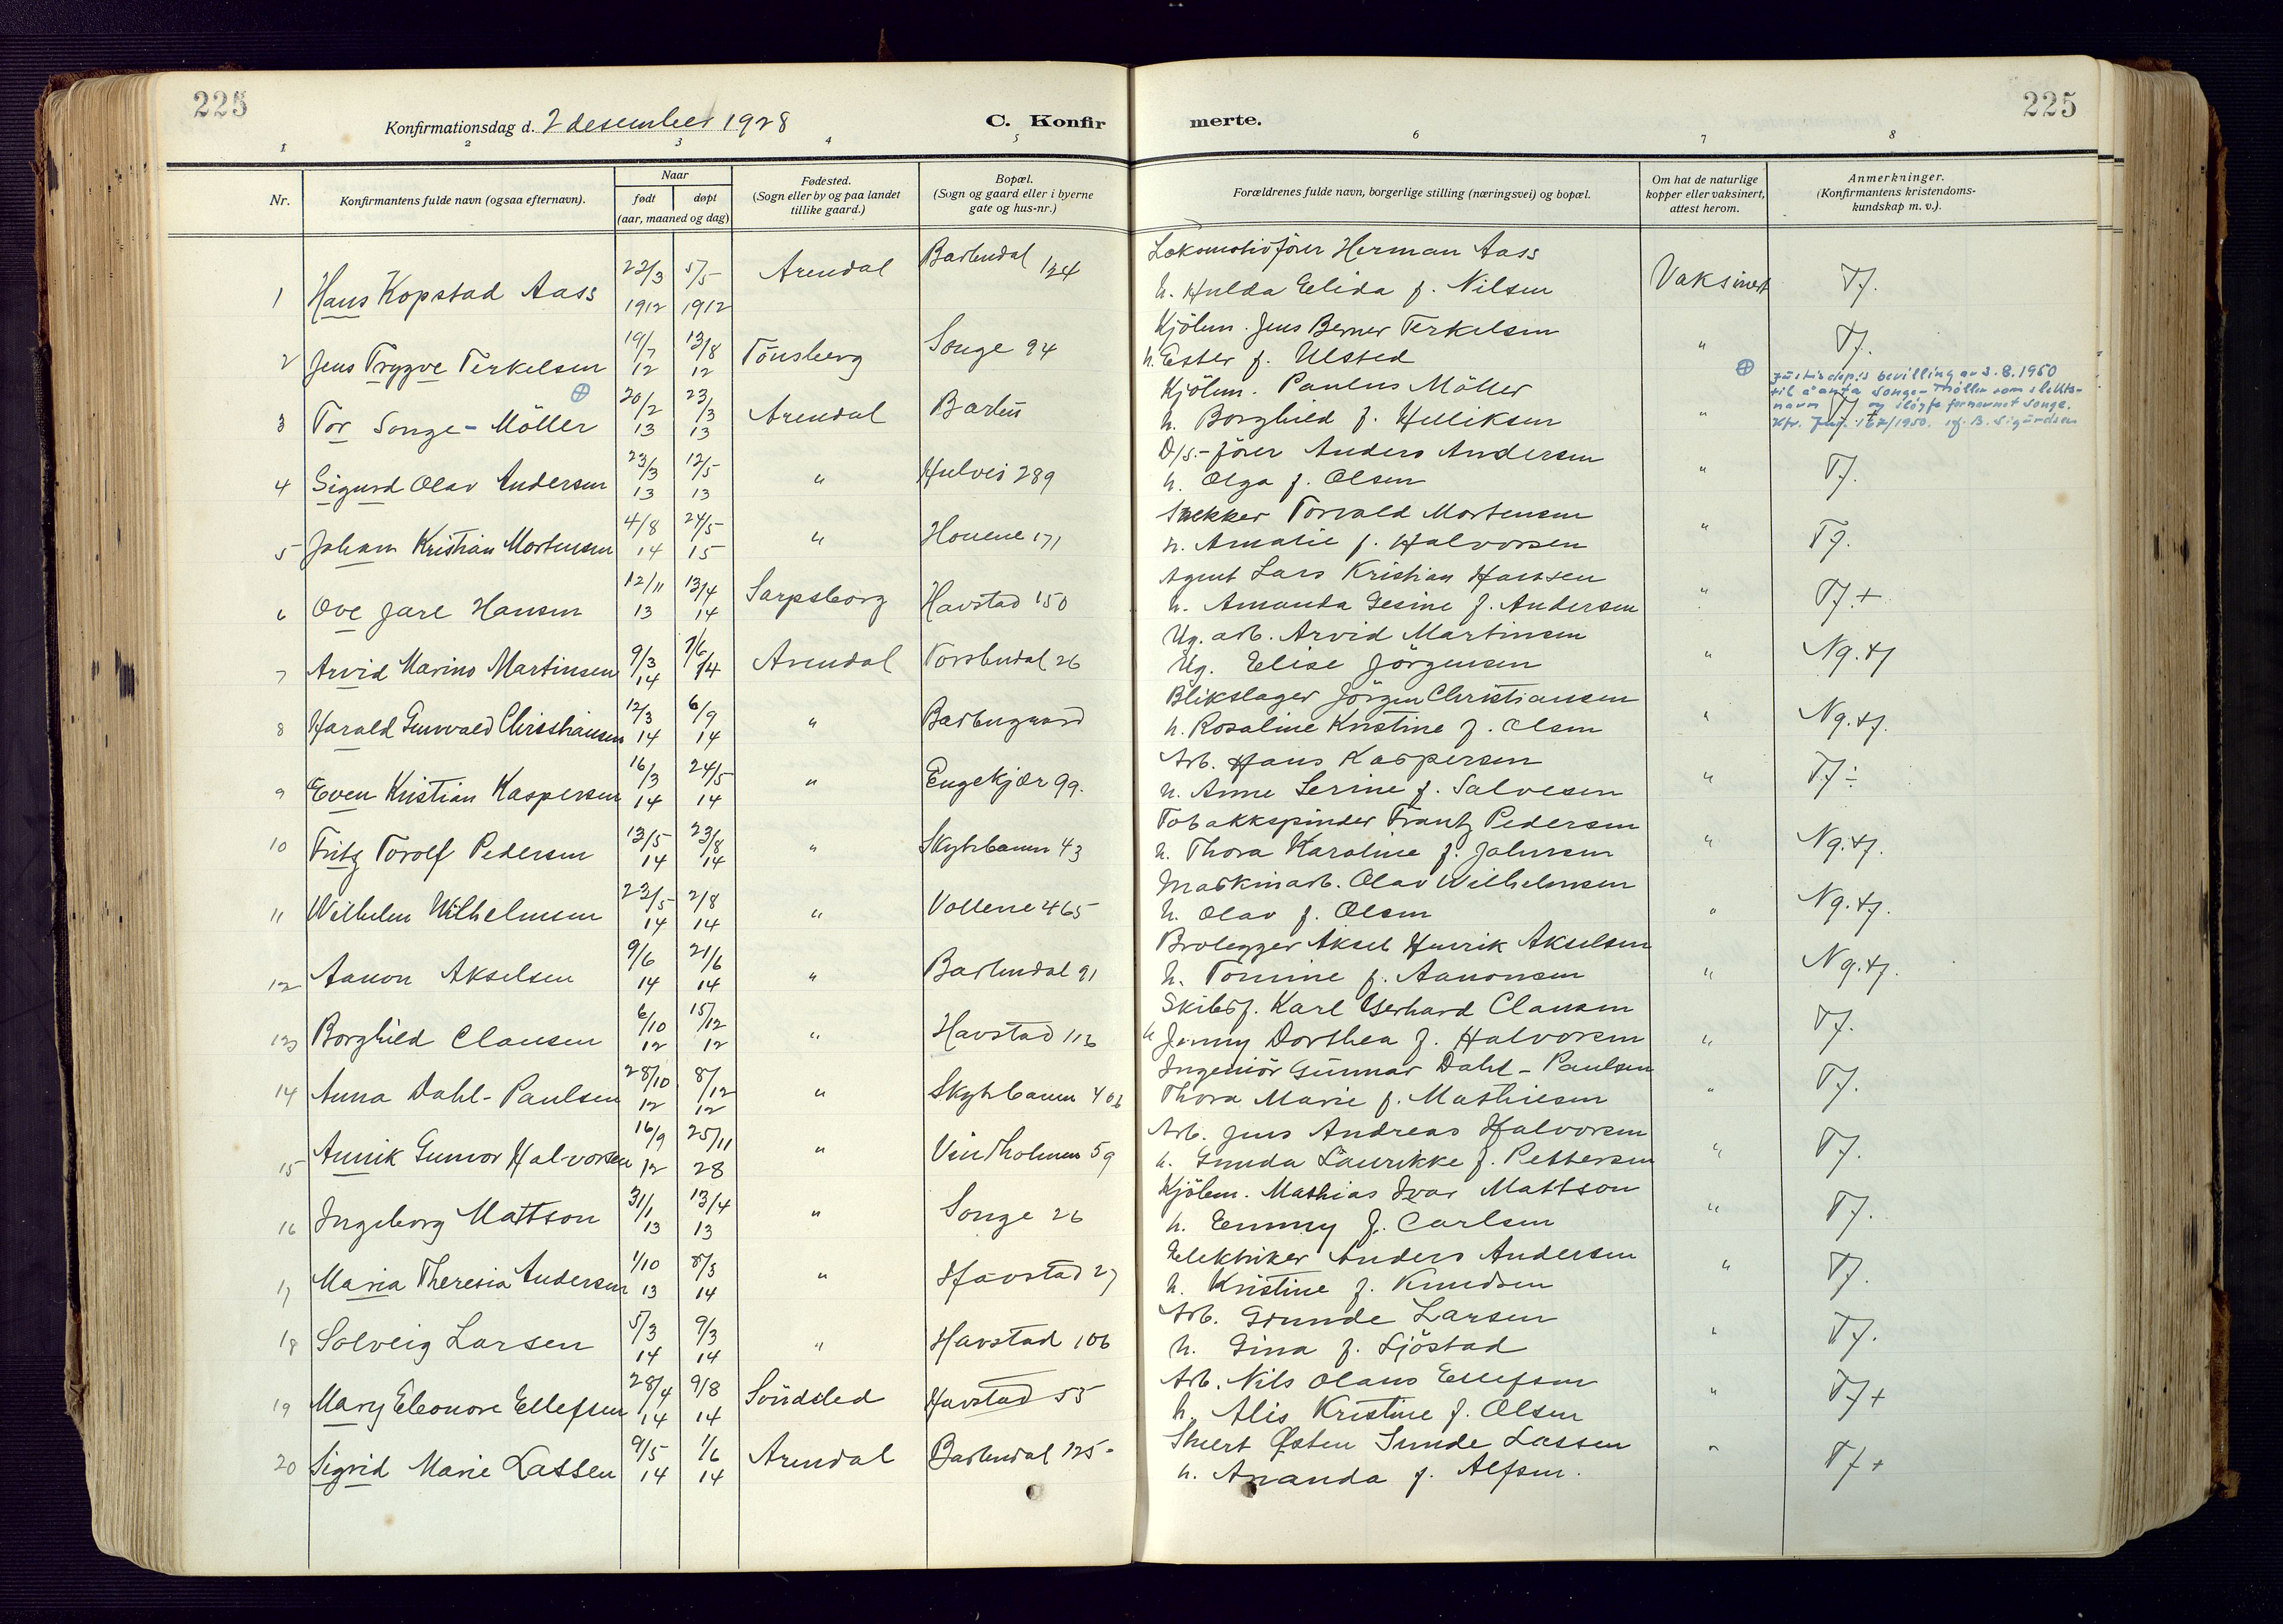 225
225
Konfirmationsdag d. 2 desember 1928
C. Konfir
merte.
1 2 3 4 5 6 7 8
Nr.
Konfirmantens fulde navn (ogsaa efternavn).
Naar
født
døpt
(aar, maaned og dag)
Fødested.
(Sogn eller by og paa landet
tillike gaard.)
Bopæl.
(Sogn og gaard eller i byerne
gate og hus-nr.)
Forældrenes fulde navn, borgerlige stilling (næringsvei) og bopæl.
Om hat de naturlige
kopper eller vaksinert,
attest herom.
Anmerkninger.
(Konfirmantens kristendoms-
kundskap m. v.).
1 Hans Kopstad Aass 22/3 1912 5/5 1912 Arendal Barbudal 124
Lokomotivfører Herman Aass
h. Hulda Elida f. Nilsen
Vaksinert Tf.
2 Jens Trygve Terkelsen 19/7 12 13/8 12 Tönsberg Songe 94
Kjölm. Jens Berner Terkelsen
h. Ester f. Ulsted
" Tf.
3 Tor Songe-Möller 20/2 13 23/3 13 Arendal Barbu
Kjölm. Paulus Möller
h. Borghild f. Helliksen
" Tf.
Justisdep:s bevilling av 3.8.1950
til å anta Songe-Möller som slekts-
navn og sløyfe fornavnet Songe.
Kfr. Jnr. 162/1950. B. Sigurdsen
4 Sigurd Olav Andersen 23/3 13 12/5 13 " Hulvei 289
D/s.-förer Anders Andersen
h. Olga f. Olsen
" Tf.
5 Johann Kristian Mortensen 4/8 14 24/5 15 " Houene 171
Snekker Torvald Mortensen
h. Amalie f. Halvorsen
" Tf.
6 Ove Jarl Hansen 12/11 13 13/4 14 Sarpsborg Havstad 150
Agent Lars Kristian Hansen
h. Amanda Gesine f. Andersen
" Tf.+
7 Arvid Marino Martinsen 9/3 14 7/6 14 Arendal Torsbudal 26
Ug. arb. Arvid Martinsen
Ug. Elise Jörgensen
" Ng.tf
8 Harald Gunvald Christiansen 12/3 14 6/9 14 " Barbugaard
Blikslager Jörgen Christiansen
h. Rosaline Kristine f. Olsen
" Ng.tf.
9 Even Kristian Kaspersen 16/3 14 24/5 14 " Engekjær 99.
Arb. Hans Kaspersen
h. Anne Serine f. Salvesen
" Tf÷
10 Fritz Torolf Pedersen 13/5 14 23/8 14 " Skytebanen 43
Tobakkspinder Frantz Pedersen
h. Thora Karoline f. Johnsen
" Ng.tf.
11 Wilhelm Wilhelmsen 23/5 14 2/8 14 " Vollene 465
Maskinarb. Olav Wilhelmsen
h. Olav f. Olsen
" Ng.tf.
12 Aanon Akselsen 9/6 14 21/6 14 " Barbudal 91
Brolegger Aksel Henrik Akselsen
h. Tomine f. Aanonsen
" Ng.tf.
13 Borghild Clausen 6/10 12 15/12 12 " Havstad 116
Skibsf. Karl Gerhard Clausen
h Jenny Dorthea f. Halvorsen
" Tf.
14 Anna Dahl-Paulsen 28/10 12 8/12 12 " Skytebanen 406
Ingeniör Gunnar Dahl-Paulsen
Thora Marie f. Mathiesen
" Tf.
15 Annik Gunvor Halvorsen 16/9 12 25/11 28 " Vindholmen 59
Arb. Jens Andreas Halvorsen
h. Gunda Laurikke f. Pettersen
" Tf.
16 Ingeborg Mattson 31/1 13 13/4 13 " Songe 26
Kjölm. Mathias Ivar Mattson
h. Emmy f. Carlsen
" Tf.
17 Maria Theresia Andersen 1/10 13 8/3 14 " Havstad 27
Elektriker Anders Andersen
h. Kristine f. Knudsen
" Tf.
18 Solveig Larsen 5/3 14 9/3 14 " Havstad 106
Arb. Grunde Larsen
h. Gina f. Sjöstad
" Tf.
19 Mary Eleonore Ellefsen 28/4 14 9/8 14 Söndeled Havstad 55
Arb. Nils Olaus Ellefsen
h. Alis Kristine f. Olsen
" Tf+
20 Sigrid Marie Lassen 9/5 14 1/6 14 Arendal Barbudal 125-
Östen Sunde Lassen
h. Ananda f. Alfsen.
" Tf+